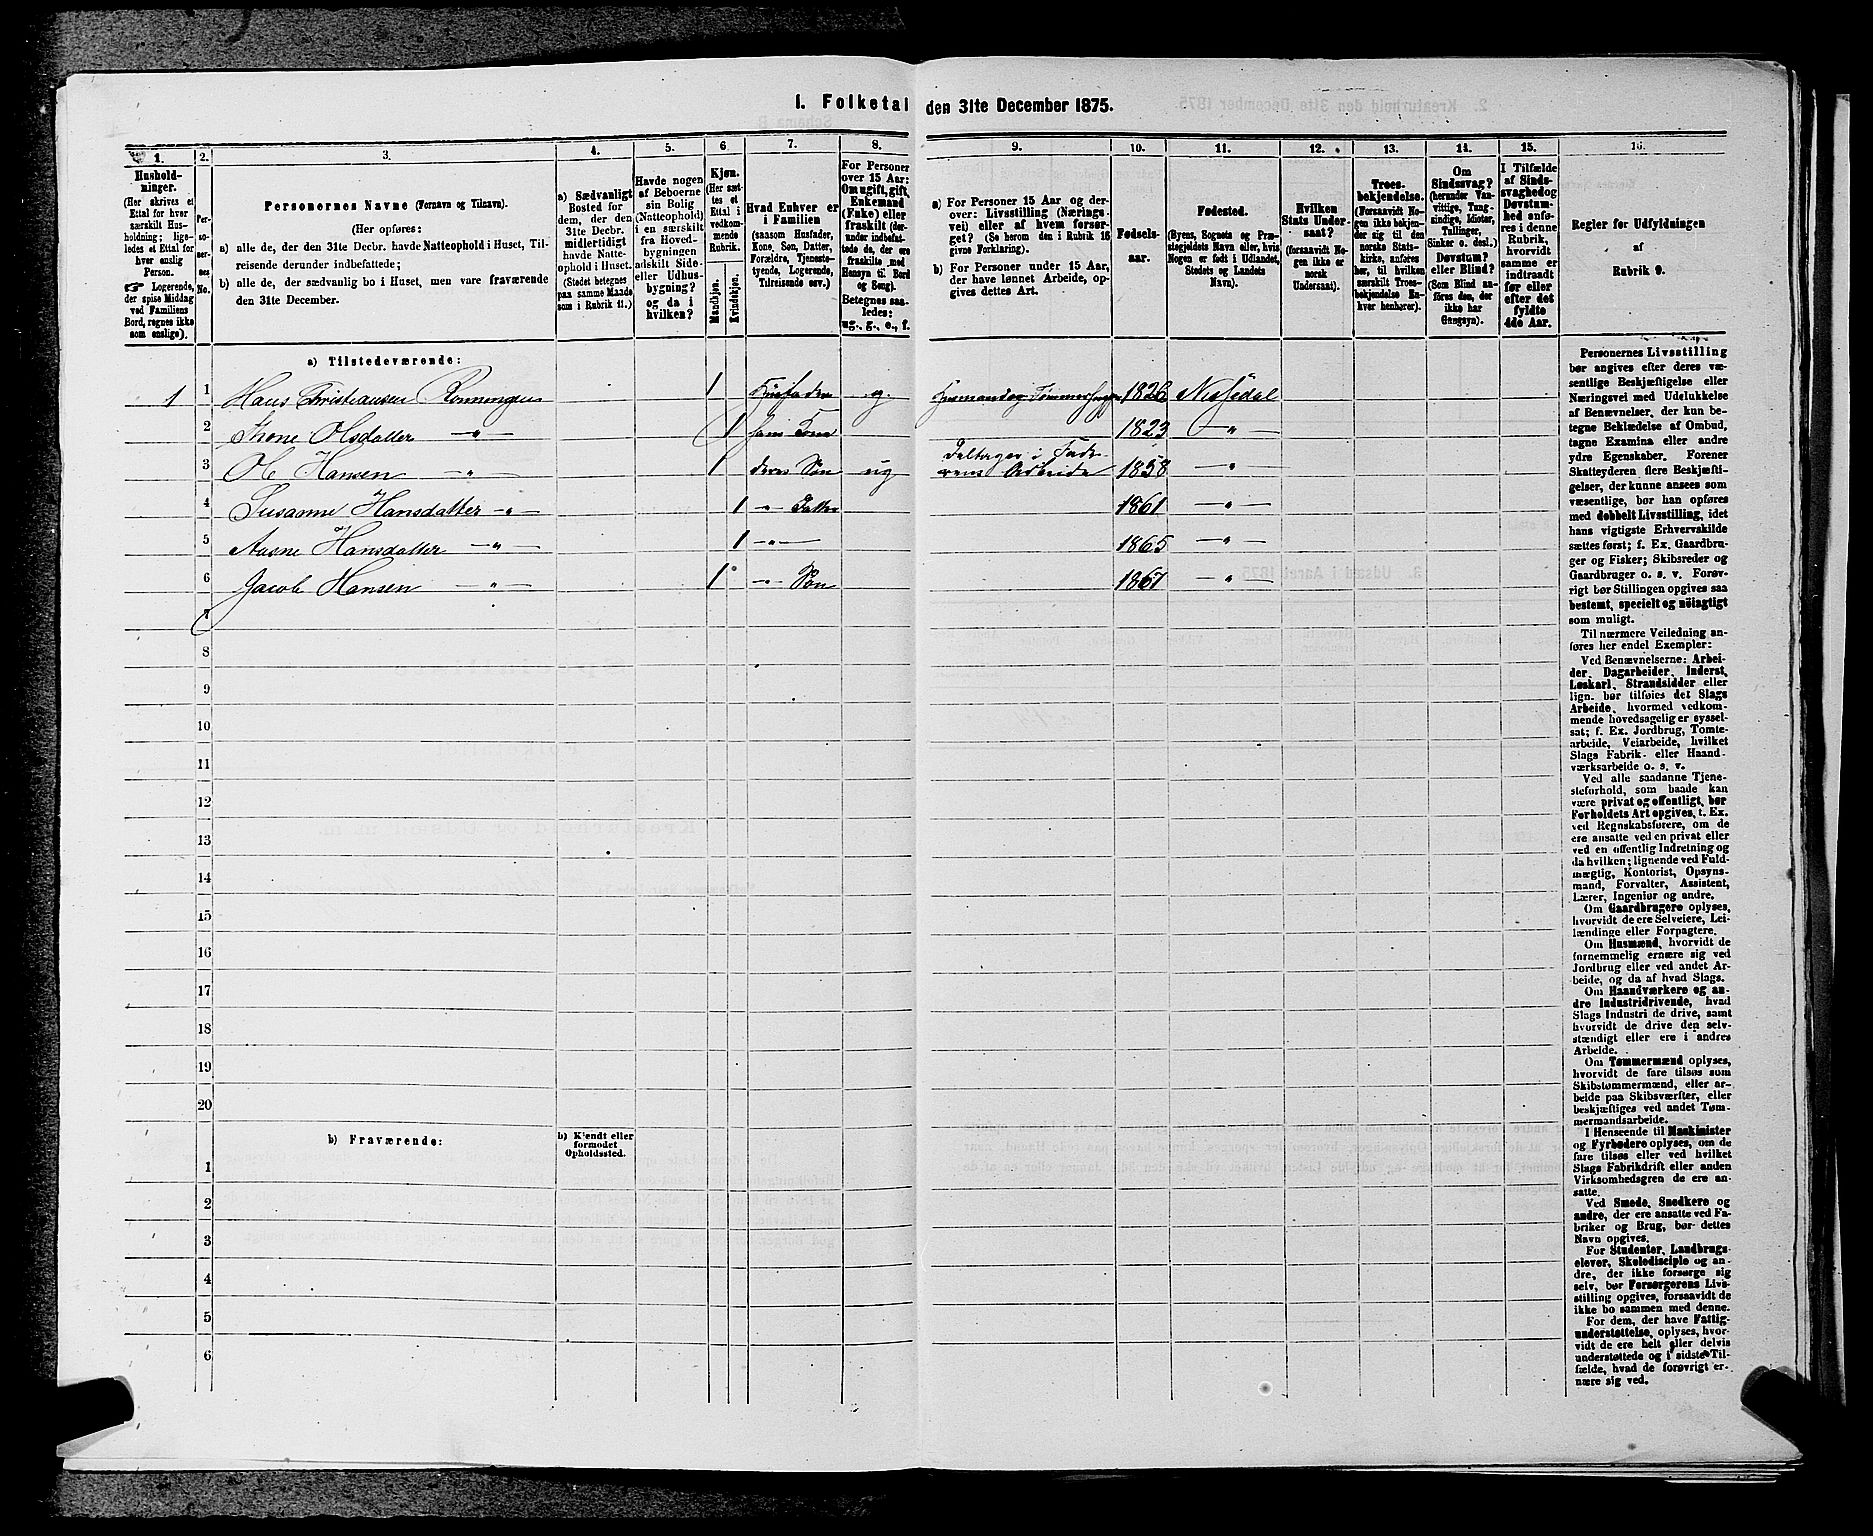 1. Folketal den 31te December 1875.
1.
Hushold-
ninger.
(Her skrives et
Ettal for hver
særskilt Hus-
holdning; lige-
ledes et Ettal for
hver enslig
Person.
☛ Logerende,
der spise Middag
ved Familiens
Bord, regnes ikke
som enslige).
2.
Per-
so-
ner-
nes
No.
3.
Personernes Navne (Fornavn og Tilnavn).
(Her opføres:
a) alle de, der den 31te Decbr. havde Natteophold i Huset, Til-
reisende derunder indbefattede;
b) alle de, der sædvanlig bo i Huset, men vare fraværende
den 31te December.
4.
a) Sædvanligt
Bosted for
dem, der den
31te Decbr.
midlertidigt
havde Natte-
ophold i Huset.
(Stedet betegnes
paa samme Maade
som i Rubrik 11.)
5.
Havde nogen
af Beboerne
sin Bolig
(Natteophold)
i en særskilt
fra Hoved-
bygningen
adskilt Side-
eller Udhus-
bygning?
og da i
hvilken?
6.
Kjøn.
(Her sæt-
tes et
Ettal i
vedkom-
mende
Rubrik.
Mandkjøn.
Kvindekjøn.
7.
Hvad Enhver er
i Familien
(saasom Husfader,
Kone, Søn, Datter,
Forældre, Tjeneste-
tyende, Logerende,
Tilreisende osv.)
8.
For Personer
over 15 Aar:
Om ugift, gift,
Enkemand
(Enke) eller
fraskilt (der-
under indbefat-
tede de, der ere
fraskilte med
Hensyn til Bord
og Seng).
Betegnes saa-
ledes:
ug., g., e., f.
9.
a) For Personer 15 Aar og der-
over: Livsstilling (Nærings-
vei) eller af hvem forsør-
get? (Se herom den i Rubrik 16
givne Forklaring).
b) For Personer under 15 Aar,
der have lønnet Arbeide, op-
gives dettes Art.
10.
Fødsels-
aar.
11.
Fødested.
(Byens, Sognets og Præ-
stegjeldets Navn eller, hvis
Nogen er født i Udlandet,
Stedets og Landets
Navn).
12.
Hvilken
Stats Under-
saat?
(forsaavidt No-
gen ikke er
norsk
Undersaat).
13.
Troes-
bekjendelse.
(Forsaavidt No-
gen ikke bekjen-
der sig til den
norske Stats-
kirke, anføres
her, til hvilken
særskilt Troes-
bekjendelse En-
hver henhører).
14.
Om
Sindssvag?
(herunder Van-
vittige, Tung-
sindige, Idioter,
Tullinger,
Sinker o. desl.)
Døvstum?
eller Blind?
(Som Blind an-
føres den, der
ikke har
Gangsyn).
15.
I Tilfælde
af Sinds-
svaghed og
Døvstum-
hed anfø-
res i denne
Rubrik,
hvorvidt
samme er
indtraadt
før eller
efter det
fyldte
4de Aar.
16.
Regler for Udfyldningen
af
Rubrik 9.
a) Tilstedeværende:
1 1 Hans Christiansen Rønningen 1 Husfader g. Husmand og Tømmerhugger 1826 Nissedal
2 Thone Olsdatter —„— 1 hans Kone 1823 —„—
3 Ole Hansen —„— 1 deres Søn ug Deltager i Fade-
rens Arbeide 1858 —„—
4 Susanne Hansdatter —„— 1 —„— Datter 1861 —„—
5 Aasne Hansdatter —„— 1 —„— 1865 —„—
6 Jacob Hansen —„— 1 —„— Søn 1867 —„—
7
8
9
10
11
12
13
14
15
16
17
18
19
20
b) Fraværende:
b) Kjendt eller
formodet
Opholdssted.
1
2
3
4
5
6
Personernes Livsstilling
bør angives efter deres væ-
sentlige Beskjæftigelse eller
Næringsvei med Udelukkelse
af Benævnelser, der kun be-
tegne Beklædelse af Ombud,
tagne Examina eller andre
ydre Egenskaber. Forener
Skatteyderen flere Beskjæfti-
gelser, der kunne ansees som
væsentlige, bør han opføres
med dobbelt Livsstilling, idet
hans vigtigste Erhvervskilde
sættes først; f. Ex. Gaardbru-
ger og Fisker; Skibsreder og
Gaardbruger o. s. v. Forøv-
rigt bør Stillingen opgives saa
bestemt, specielt og nöiagtigt
som muligt.
Til nærmere Veiledning an-
føres her endel Exempler:
Ved Benævnelserne: Arbei-
der, Dagarbeider, Inderst,
Løskarl, Strandsidder eller
lign. bør tilføies det Slags
Arbeide, hvormed vedkom-
mende hovedsagelig er syssel-
sat; f. Ex. Jordbrug, Tomte-
arbeide, Veiarbeide, hvilket
Slags Fabrik- eller Haand-
værksarbeide o. s. v.
Ved alle saadanne Tjene-
steforhold, som baade kan
være privat og offentligt, bør
Forholdets Art opgives, t. Ex.
ved Regnskabsførere, om de
ere ansatte ved en privat eller
ved en offentlig Indretning og
da hvilken; lignende ved Fuld-
mægtig, Kontorist, Opsyns-
mand, Forvalter, Assistent,
Lærer, Ingeniør og andre.
Om Gaardbrugere oplyses,
hvorvidt de ere Selveiere, Lei-
lændinge eller Forpagtere.
Om Husmænd, hvorvidt de
fornemmelig ernære sig ved
Jordbrug eller ved andet Ar-
beide, og da af hvad Slags.
Om Haandværkere og an-
dre Industridrivende, hvad
Slags Industri de drive, samt
hvorvidt de drive den selv-
stændigt eller ere i andres
Arbeide.
Om Tømmermænd oplyses,
hvorvidt de fare tilsøs som
Skibstømmermænd, eller ar-
beide paa Skibsværfter, eller
beskjæftiges ved andet Tøm-
mermandsarbeide.
I Henseende til Maskinister
og Fyrbødere oplyses, om de
fare tilsøs eller ved hvilket
Slags Fabrikdrift eller anden
Virksomhedsgren de ere an-
satte.
Ved Smede, Snedkere og
andre, der ere ansatte ved Fa-
briker og Brug, bør dettes
Navn opgives.
For Studenter, Landbrugs-
elever, Skoledisciple og an-
dre, der ikke forsørge sig
selv, bør Forsørgerens Livs-
stilling opgives, forsaavidt de
ikke bo sammen med denne.
For dem, der have Fattig-
understøttelse, oplyses, hvor-
vidt de ere helt eller delvis
understøttede og i sidste Til-
fælde, hvad de forøvrigt er-
nære sig ved.